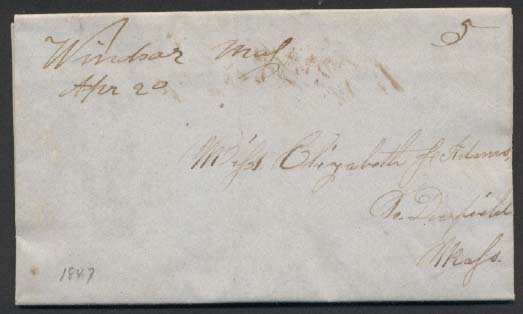 Windsor Mass
Apr 20
5
Miss Elizabeth J. Adams,
So. Deerfield
Mass.
1847